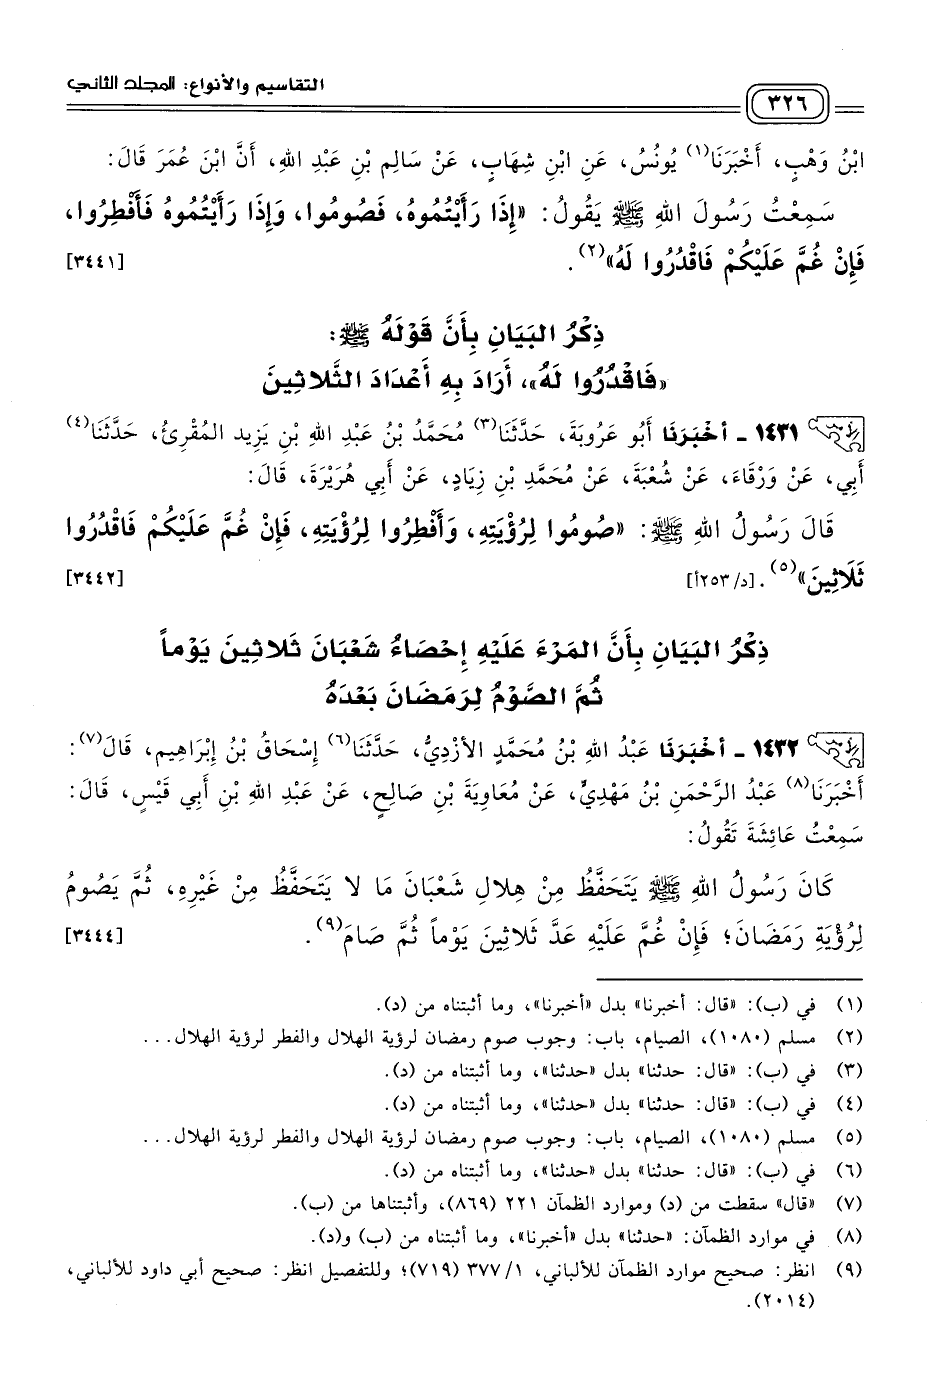 التقاسيم والأنواع: المجلد الثاني
٣٢٦
ابْنُ وَهْبٍ، أَخْبَرَنَا(١) يُونُسُ، عَنِ ابْنِ شِهَابٍ، عَنْ سَالِمِ بْنِ عَبْدِ اللهِ، أَنَّ ابْنَ عُمَرَ قَالَ:
سَمِعْتُ رَسُولَ اللهِ ﷺ يَقُولُ: «إِذَا رَأَيْتُمُوهُ، فَصُومُوا، وَإِذَا رَأَيْتُمُوهُ فَأَفْطِرُوا،
فَإِنْ غُمَّ عَلَيْكُمْ فَاقْدُرُوا لَهُ»(٢). [٣٤٤١]
ذِكْرُ البَيَانِ بِأَنَّ قَوْلَهُ ﷺ:
«فَاقْدُرُوا لَهُ»، أَرَادَ بِهِ أَعْدَادَ الثَّلَاثِينَ
١٤٣١ - أخْبَرَنَا أَبُو عَرُوبَةَ، حَدَّثَنَا(٣) مُحَمَّدُ بْنُ عَبْدِ اللهِ بْنِ يَزِيد المُقْرِئُ، حَدَّثَنَا(٤)
أَبِي، عَنْ وَرْقَاءَ، عَنْ شُعْبَةَ، عَنْ مُحَمَّدِ بْنِ زِيَادٍ، عَنْ أَبِي هُرَيْرَةَ، قَالَ:
قَالَ رَسُولُ اللهِ ﷺ: «صُومُوا لِرُؤْيَتِهِ، وَأَفْطِرُوا لِرُؤْيَتِهِ، فَإِنْ غُمَّ عَلَيْكُمْ فَاقْدُرُوا
ثَلَاثِينَ»(٥). [د/٢٥٣أ] [٣٤٤٢]
ذِكْرُ البَيَانِ بِأَنَّ المَرْءَ عَلَيْهِ إِحْصَاءُ شَعْبَانَ ثَلاثِينَ يَوْماً
ثُمَّ الصَّوْمُ لِرَمَضَانَ بَعْدَهُ
١٤٣٢ - أخْبَرَنَا عَبْدُ اللهِ بْنُ مُحَمَّدٍ الأزْدِيُّ، حَدَّثَنَا(٦) إِسْحَاقُ بْنُ إِبْرَاهِيم، قَالَ(٧):
أَخْبَرَنَا(٨) عَبْدُ الرَّحْمَنِ بْنُ مَهْدِيٍّ، عَنْ مُعَاوِيَةَ بْنِ صَالِحٍ، عَنْ عَبْدِ اللهِ بْنِ أَبِي قَيْسٍ، قَالَ:
سَمِعْتُ عَائِشَةَ تَقُولُ:
كَانَ رَسُولُ اللهِ ﷺ يَتَحَفَّظُ مِنْ هِلالِ شَعْبَانَ مَا لا يَتَحَفَّظُ مِنْ غَيْرِهِ، ثُمَّ يَصُومُ
لِرُؤْيَةِ رَمَضَانَ؛ فَإِنْ غُمَّ عَلَيْهِ عَدَّ ثَلاثِينَ يَوْماً ثُمَّ صَامَ(٩). [٣٤٤٤]
(١) في (ب): «قال: أخبرنا» بدل «أخبرنا»، وما أثبتناه من (د).
(٢) مسلم (١٠٨٠)، الصيام، باب: وجوب صوم رمضان لرؤية الهلال والفطر لرؤية الهلال...
(٣) في (ب): «قال: حدثنا» بدل «حدثنا»، وما أثبتناه من (د).
(٤) في (ب): «قال: حدثنا» بدل «حدثنا»، وما أثبتناه من (د).
(٥) مسلم (١٠٨٠)، الصيام، باب: وجوب صوم رمضان لرؤية الهلال والفطر لرؤية الهلال...
(٦) في (ب): «قال: حدثنا» بدل «حدثنا»، وما أثبتناه من (د).
(٧) «قال» سقطت من (د) وموارد الظمآن ٢٢١ (٨٦٩)، وأثبتناها من (ب).
(٨) في موارد الظمآن: «حدثنا» بدل «أخبرنا»، وما أثبتناه من (ب) و(د).
(٩) انظر: صحيح موارد الظمآن للألباني، ١/ ٣٧٧ (٧١٩)؛ وللتفصيل انظر: صحيح أبي داود للألباني،
(٢٠١٤).